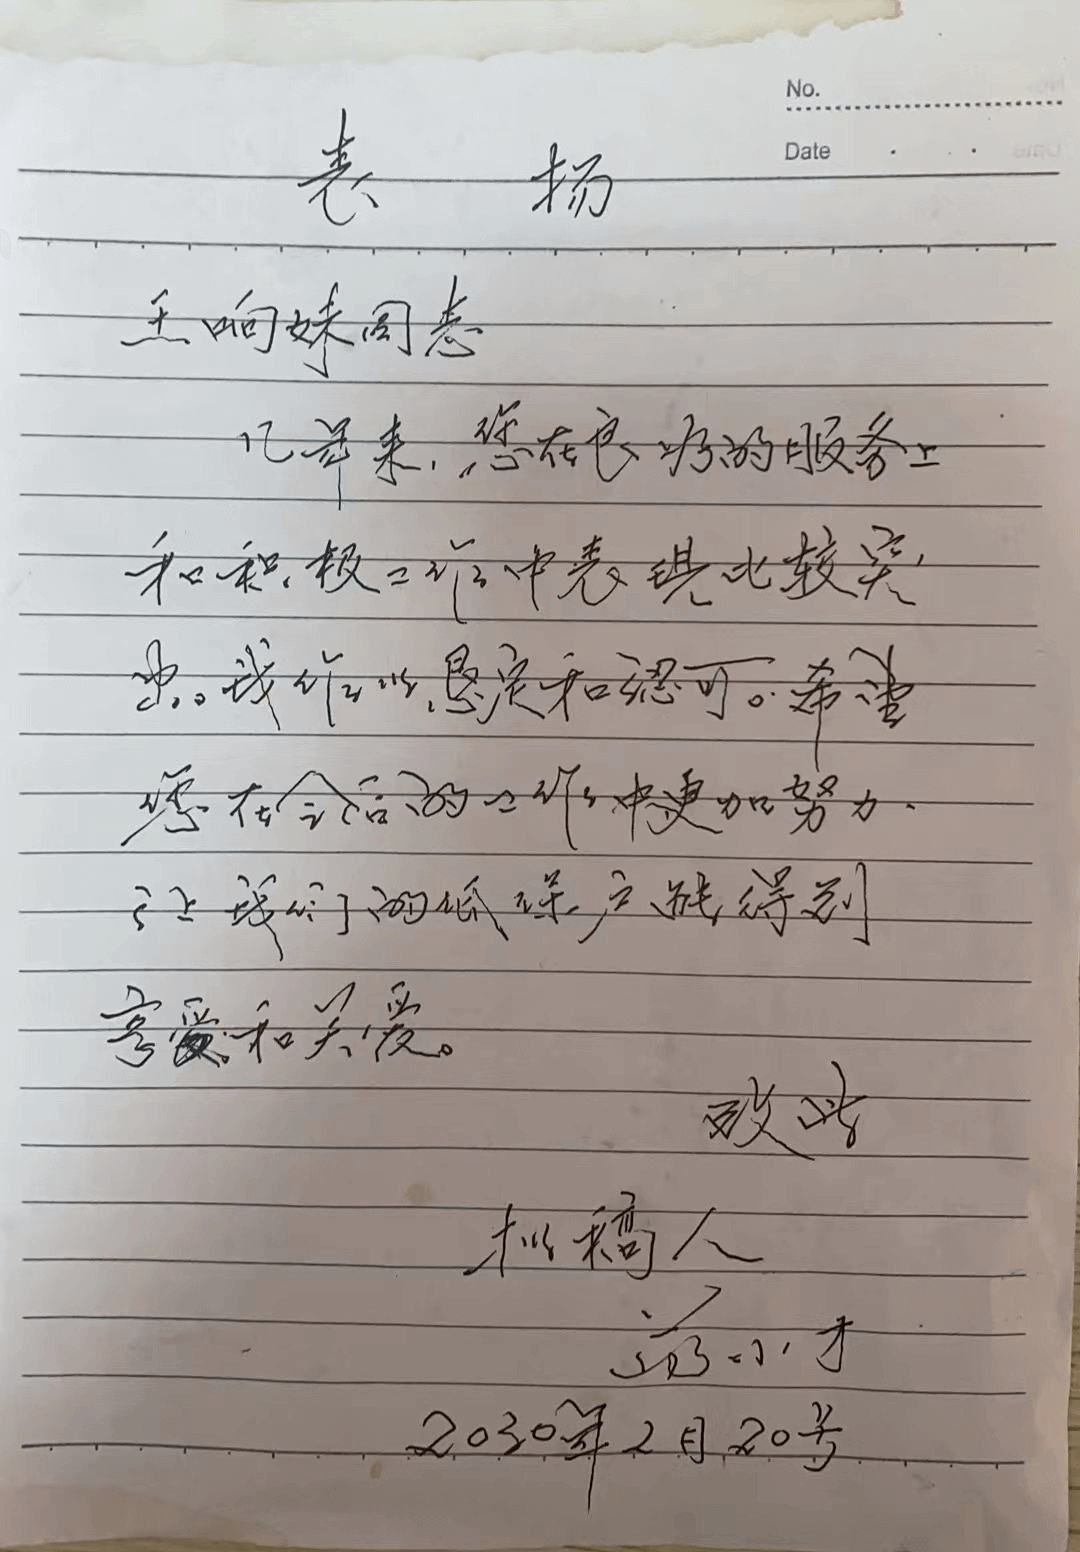 No.
Date
表 扬
王响妹同志
几年来,您在良好的服务上
和积极工作中表现比较突
出。我作以恳定和認可。希望
您在今后的工作中更加努力.
让我们的低保户能得到
享爱和关爱。
致此
拟稿人
小才
2030年2月20号